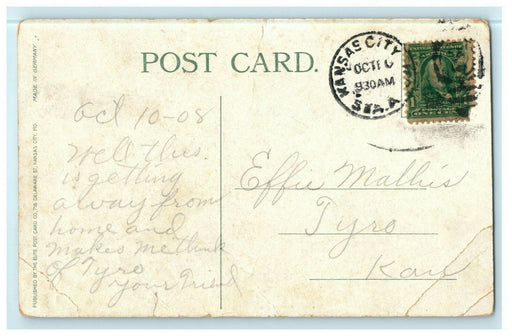 POST CARD.
MADE IN GERMANY
PUBLISHED BY THE ELITE POST CARD CO., 716 DELAWARE ST. KANSAS CITY, MO.
KANSAS CITY
OCT 10
930AM
STA. A
Oct 10-08
Well this
is getting
away from
home and
makes me think
of Tyro
your Friend
Effie Mathis
Tyro
Kan